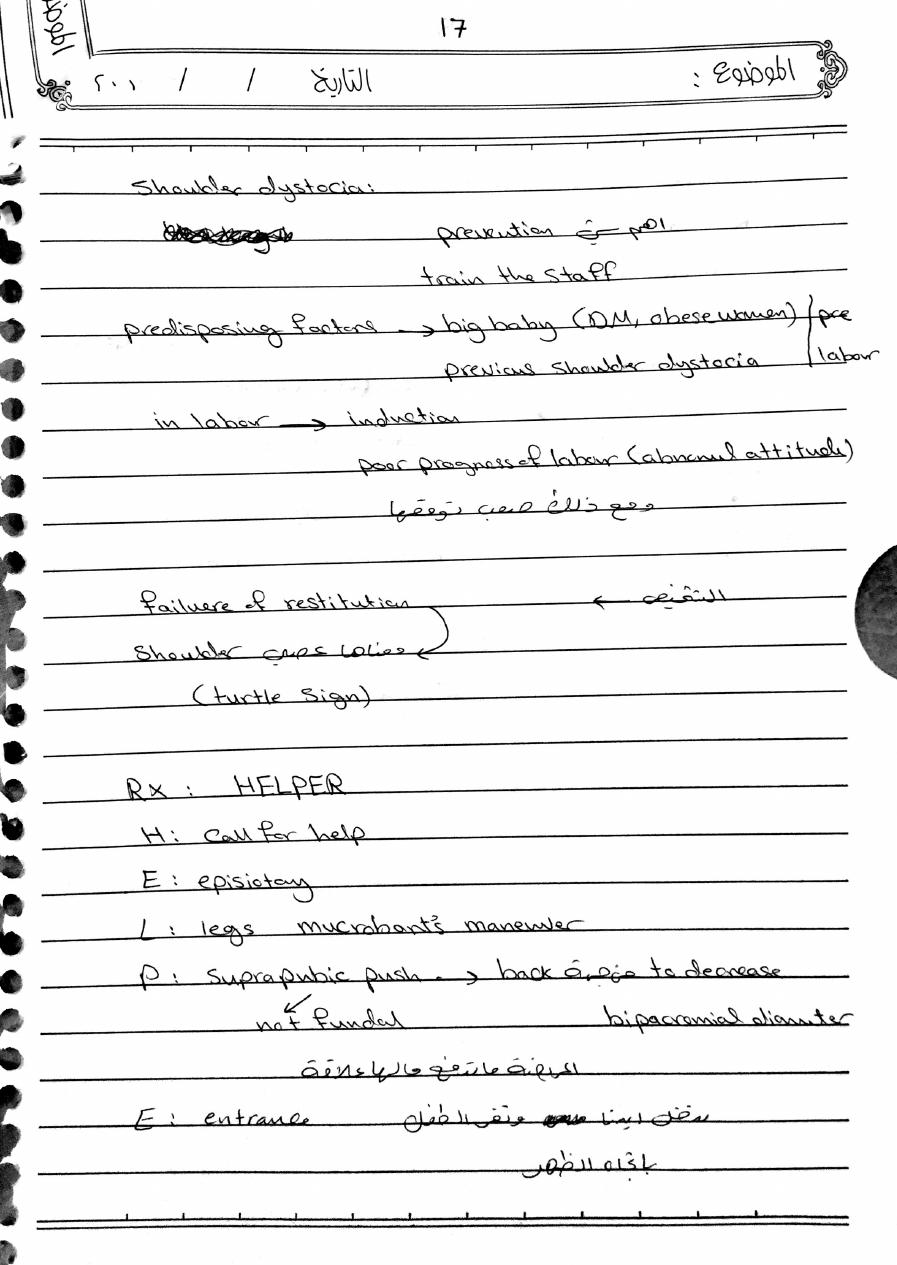 17
الموضوع :
التاريخ / / ٢٠٠١
Shoulder dystocia:
اهم شيء prevention
train the staff
predisposing factors → big baby (DM, obese women) | pre
previous shoulder dystocia | labour
in labor → induction
poor progness of labour (abnomul attitude)
ومع ذلك صعب توقعها
التشخيص ←
failuere of restitution
Shoulder
(turtle sign)
Rx : HELPER
H : call for help
E : episiotomy
L : legs mucrobant's maneuver
P : suprapubic push → back to decrease
not fundal bipacromial diamter
المريضة ما تدفع مالها علاقة
E : entrance ندخل ايدنا ونلف الطفل
باتجاه الظهر